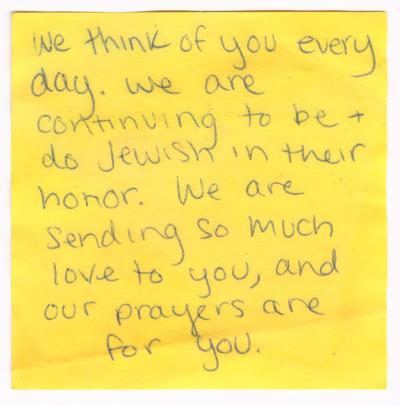 We think of you every
day. We are
continuing to be +
do Jewish in their
honor. We are
sending so much
love to you, and
our prayers are
for you.